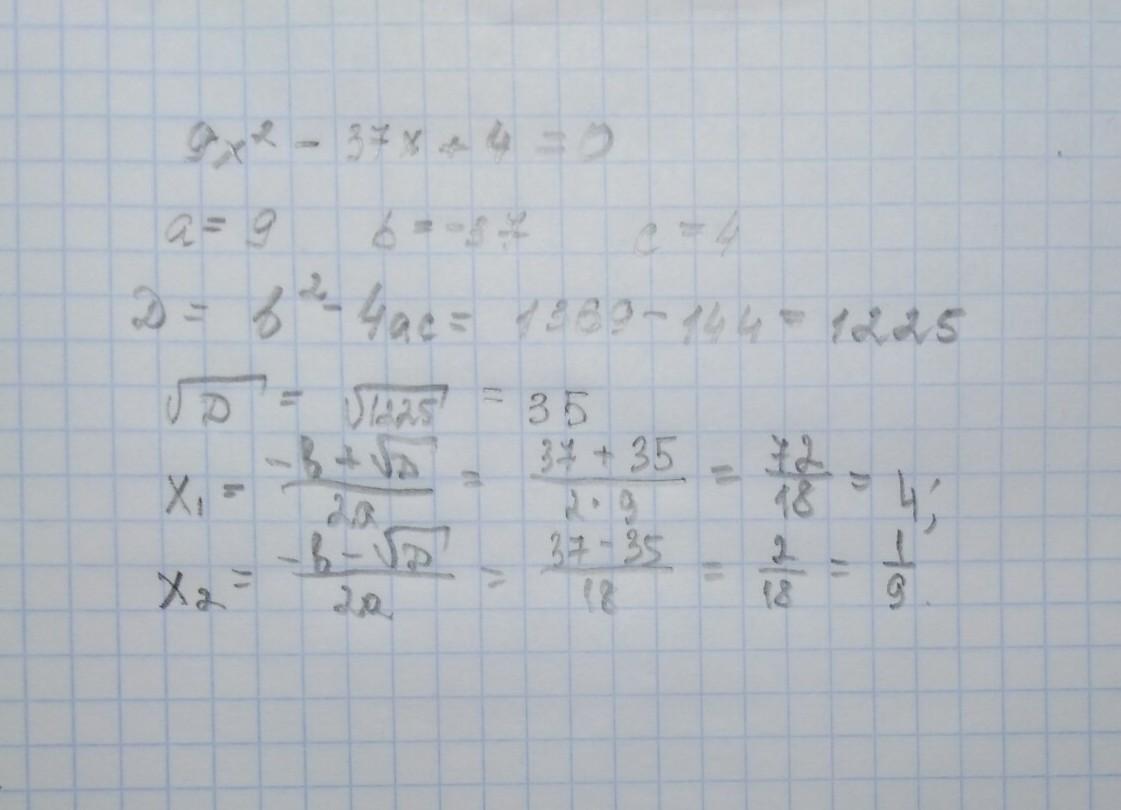 9x² - 37x + 4 = 0
a = 9 b = -37 c = 4
D = b² - 4ac = 1369 - 144 = 1225
√D = √1225 = 35
x₁ = (-b + √D)/(2a) = (37 + 35)/(2·9) = 72/18 = 4;
x₂ = (-b - √D)/(2a) = (37 - 35)/18 = 2/18 = 1/9.